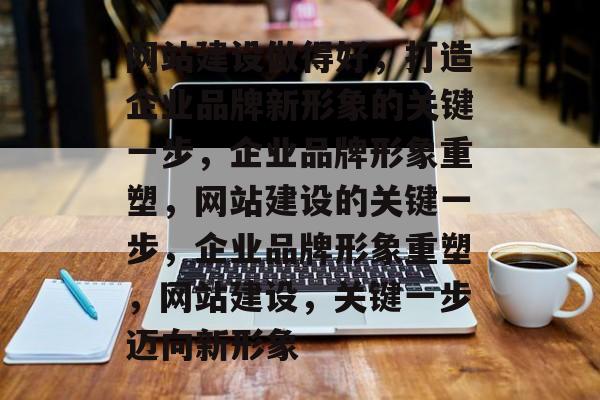 网站建设做得好，打造
企业品牌新形象的关键
一步，企业品牌形象重
塑，网站建设的关键一
步，企业品牌形象重塑
，网站建设，关键一步
迈向新形象